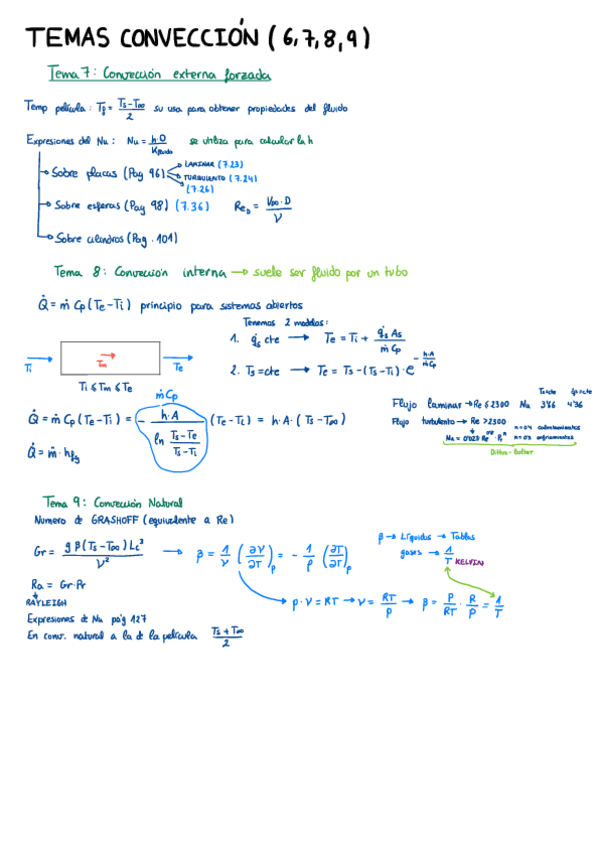 TEMAS CONVECCIÓN (6,7,8,9)
Tema 7: Convección externa forzada
Temp película: Tf = (Ts-T∞)/2 su usa para obtener propiedades del fluido
Expresiones del Nu: Nu = h·D/Kfluido se utiliza para calcular la h
Sobre placas (Pag 96) LAMINAR (7.23)
TURBULENTO (7.24)
(7.26)
Sobre esferas (Pag 98) (7.36) Re_D = V∞·D/ν
Sobre cilindros (Pag. 101)
Tema 8: Convección interna → suele ser fluido por un tubo
Q̇ = ṁ Cp (Te-Ti) principio para sistemas abiertos
Tenemos 2 modelos:
1. q̇s cte → Te = Ti + q̇s As/ṁ Cp
2. Ts=cte → Te = Ts-(Ts-Ti)·e^(-h·A/ṁCp)
Ti Tm Te
Ti ≤ Tm ≤ Te
ṁ Cp
Q̇ = ṁ Cp (Te-Ti) = - h·A/ln((Ts-Te)/(Ts-Ti)) (Te-Ti) = h·A·(Ts-T∞)
Q̇ = ṁ·hfg
Ts=cte q̇s=cte
Flujo laminar → Re ≤ 2300 Nu 3'66 4'36
Flujo turbulento → Re > 2300 n=0'4 calentamientos
Nu = 0'023 Re^0'8 · Pr^n n=0'3 enfriamientos
Dittus-Boelter
Tema 9: Convección Natural
Numero de GRASHOFF (equivalente a Re)
Gr = gβ(Ts-T∞)Lc³/ν² → β = 1/ν (∂ν/∂T)p = - 1/ρ (∂T/∂T)p
β → Líquidos → Tablas
gases → 1/T KELVIN
p·ν = RT → ν = RT/p → β = P/RT · R/P = 1/T
Ra = Gr·Pr
RAYLEIGH
Expresiones de Nu pág 127
En conv. natural a la de la película (Ts+T∞)/2